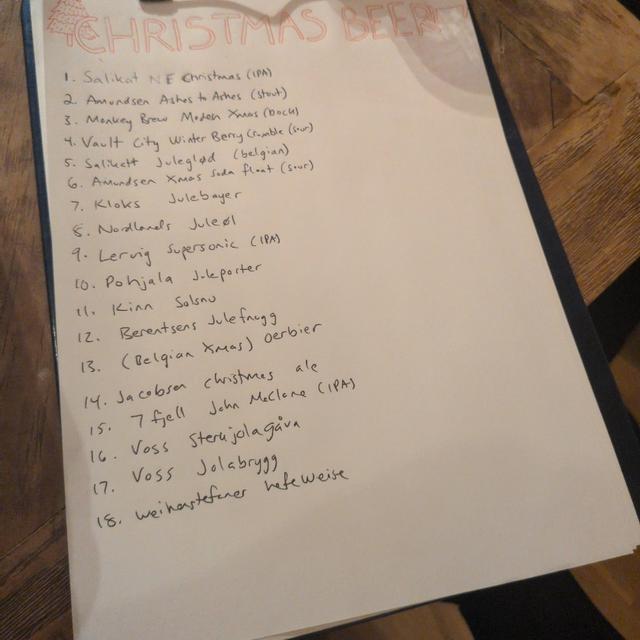 CHRISTMAS BEER
1. Salikat NE Christmas (IPA)
2. Amundsen Ashes to Ashes (stout)
3. Monkey Brew Moden Xmas (Bock)
4. Vault City Winter Berry Crumble (sour)
5. Salikatt Juleglød (belgian)
6. Amundsen Xmas Soda float (sour)
7. Kloks Julebayer
8. Nordlands Juleøl
9. Lervig Supersonic (IPA)
10. Pohjala Juleporter
11. Kinn Solsnu
12. Berentsens Julefnugg
13. (Belgian Xmas) Oerbier
14. Jacobsen christmas ale
15. 7 fjell John McClane (IPA)
16. Voss Sterkjolagåva
17. Voss Jolabrygg
18. weihenstefaner hefeweise